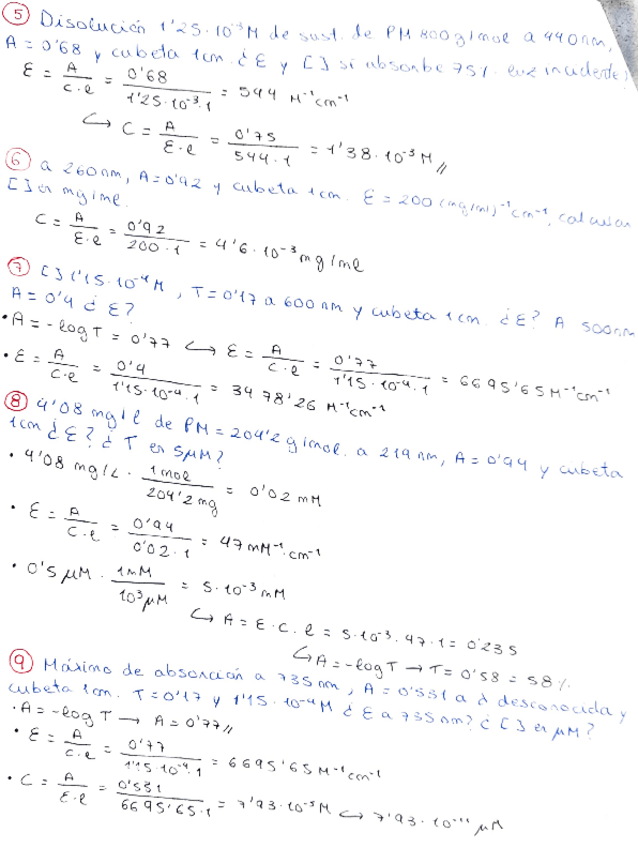 ⑤ Disolución 1'25·10⁻³M de sust. de PM 800g/mol a 440nm,
A = 0'68 y cubeta 1cm. ¿ε y [] si absorbe 75% luz incidente?
ε = A/c·l = 0'68/1'25·10⁻³·1 = 544 M⁻¹cm⁻¹
↳ C = A/ε·l = 0'75/544·1 = 1'38·10⁻³M //
⑥ a 260nm, A=0'92 y cubeta 1cm. ε = 200 (mg/ml)⁻¹cm⁻¹, calcular
[] en mg/ml.
C = A/ε·l = 0'92/200·1 = 4'6·10⁻³ mg/ml
⑦ [] 1'15·10⁻⁴M, T=0'17 a 600nm y cubeta 1cm. ¿ε? A 500nm
A=0'4 ¿ε?
• A = -logT = 0'77 ↳ ε = A/c·l = 0'77/1'15·10⁻⁴·1 = 6695'65 M⁻¹cm⁻¹
• ε = A/c·l = 0'4/1'15·10⁻⁴·1 = 3478'26 M⁻¹cm⁻¹
⑧ 4'08 mg/l de PM = 204'2 g/mol. a 219nm, A=0'94 y cubeta
1cm ¿ε? ¿T en 5μM?
• 4'08 mg/L · 1mol/204'2mg = 0'02 mM
• ε = A/c·l = 0'94/0'02·1 = 47 mM⁻¹·cm⁻¹
• 0'5 μM · 1mM/10³μM = 5·10⁻³ mM
↳ A = ε·c·l = 5·10⁻³·47·1 = 0'235
↳ A=-logT → T=0'58 = 58%
⑨ Máximo de absorción a 735nm, A=0'551 a λ desconocida y
cubeta 1cm. T=0'17 y 1'15·10⁻⁴M ¿ε a 735nm? ¿[] en μM?
• A=-logT → A=0'77 //
• ε = A/c·l = 0'77/1'15·10⁻⁴·1 = 6695'65 M⁻¹cm⁻¹
• C = A/ε·l = 0'531/6695'65·1 = 7'93·10⁻⁵M ↳ 7'93·10⁻¹¹ μM